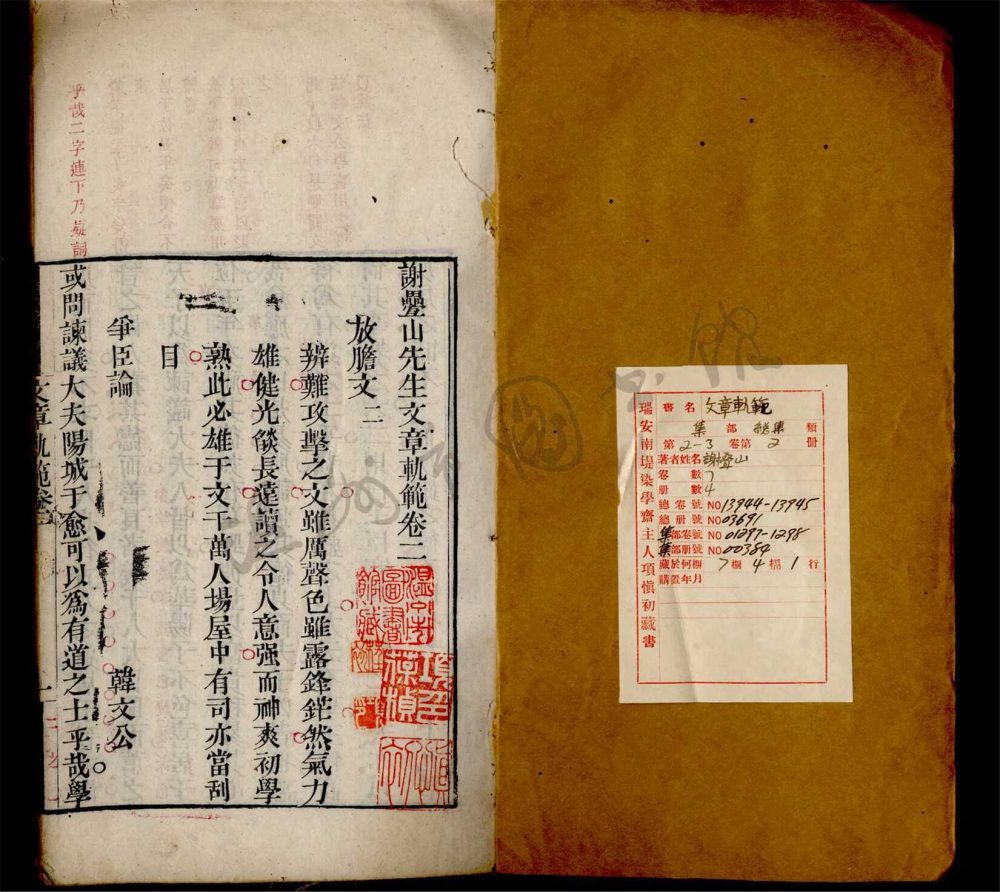 瑞安南堤染學齋主人項愼初藏書
書名 文章軌範
集部 總集 類
第2-3卷 第2冊
著者姓名 謝疊山
卷數 7
册數 4
總卷號 NO 13944-13945
總册號 NO 03691
集部卷號 NO 01297-1298
集部册號 NO 00384
藏於何櫥 7櫥 4槅 1行
購置年月
謝疊山先生文章軌範卷二
放膽文 二
辨難攻擊之文雖厲聲色雖露鋒鋩然氣力
雄健光燄長遠讀之令人意强而神爽初學
熟此必雄于文千萬人場屋中有司亦當刮
目
爭臣論 韓文公
或問諫議大夫陽城于愈可以爲有道之士乎哉學
乎哉二字連下乃疑詞
文章軌範卷二